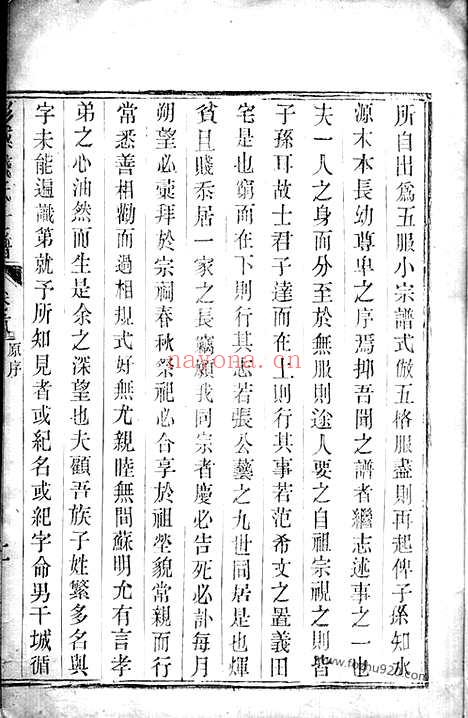 所自出爲五服小宗譜式倣五格服盡則再起俾子孫知水
源木本長幼尊卑之序焉抑吾聞之譜者繼志述事之一也
夫一人之身而分至於無服則途人要之自祖宗視之則皆
子孫耳故士君子達而在上則行其事若范希文之置義田
宅是也窮而在下則行其志若張公藝之九世同居是也煇
貧且賤忝居一家之長竊願我同宗者慶必告死必訃每月
朔望必虔拜於宗祠春秋祭祀必合享於祖塋貌常親而行
常悉善相勸而過相規式好無尤親睦無間蘇明允有言孝
弟之心油然而生是余之深望也夫顧吾族子姓繁多名與
字未能遍識第就予所知見者或紀名或紀字命男干城循
原序
nayona.cn